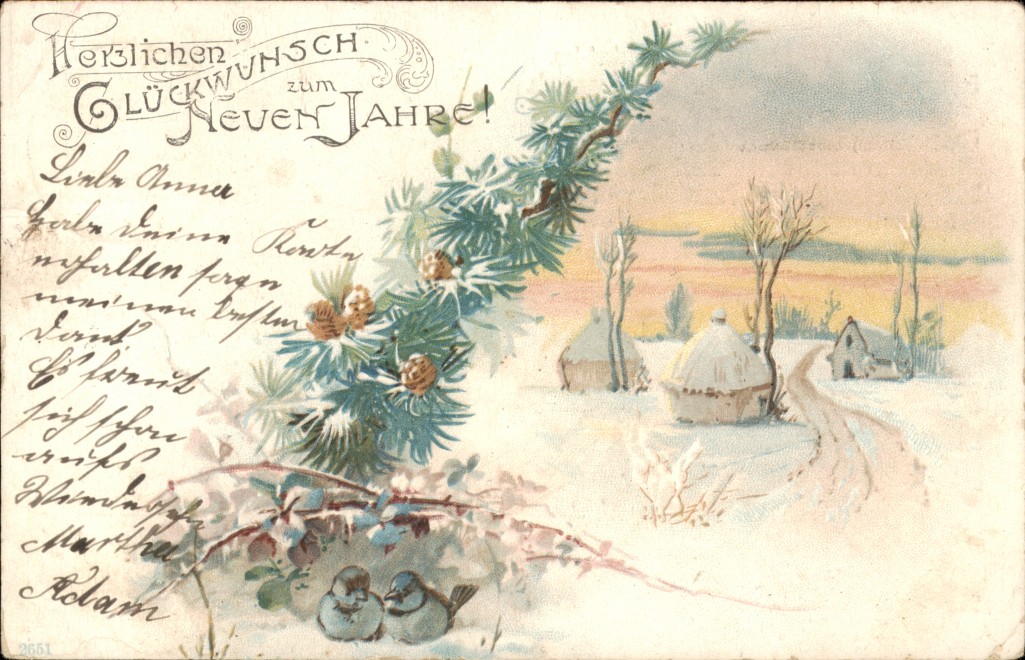 Herzlichen
Glückwunsch
zum
Neuen Jahre!
Liebe Anna
Habe deine Karte
erhalten sage
meinen besten
Dank
Es freut
sich schon
aufs
Wiedersehn
Martha
Adam
2651